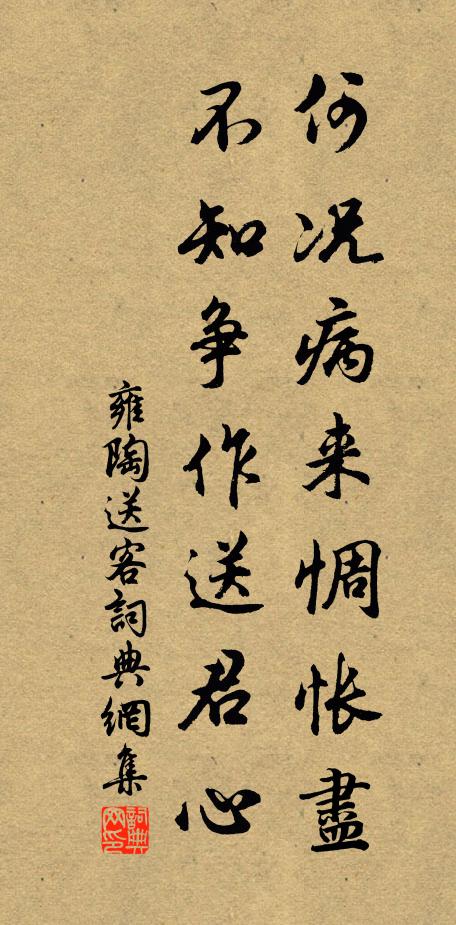 何况病来惆怅盡
不知争作送君心
雍陶送客詞典網集
詞典網印